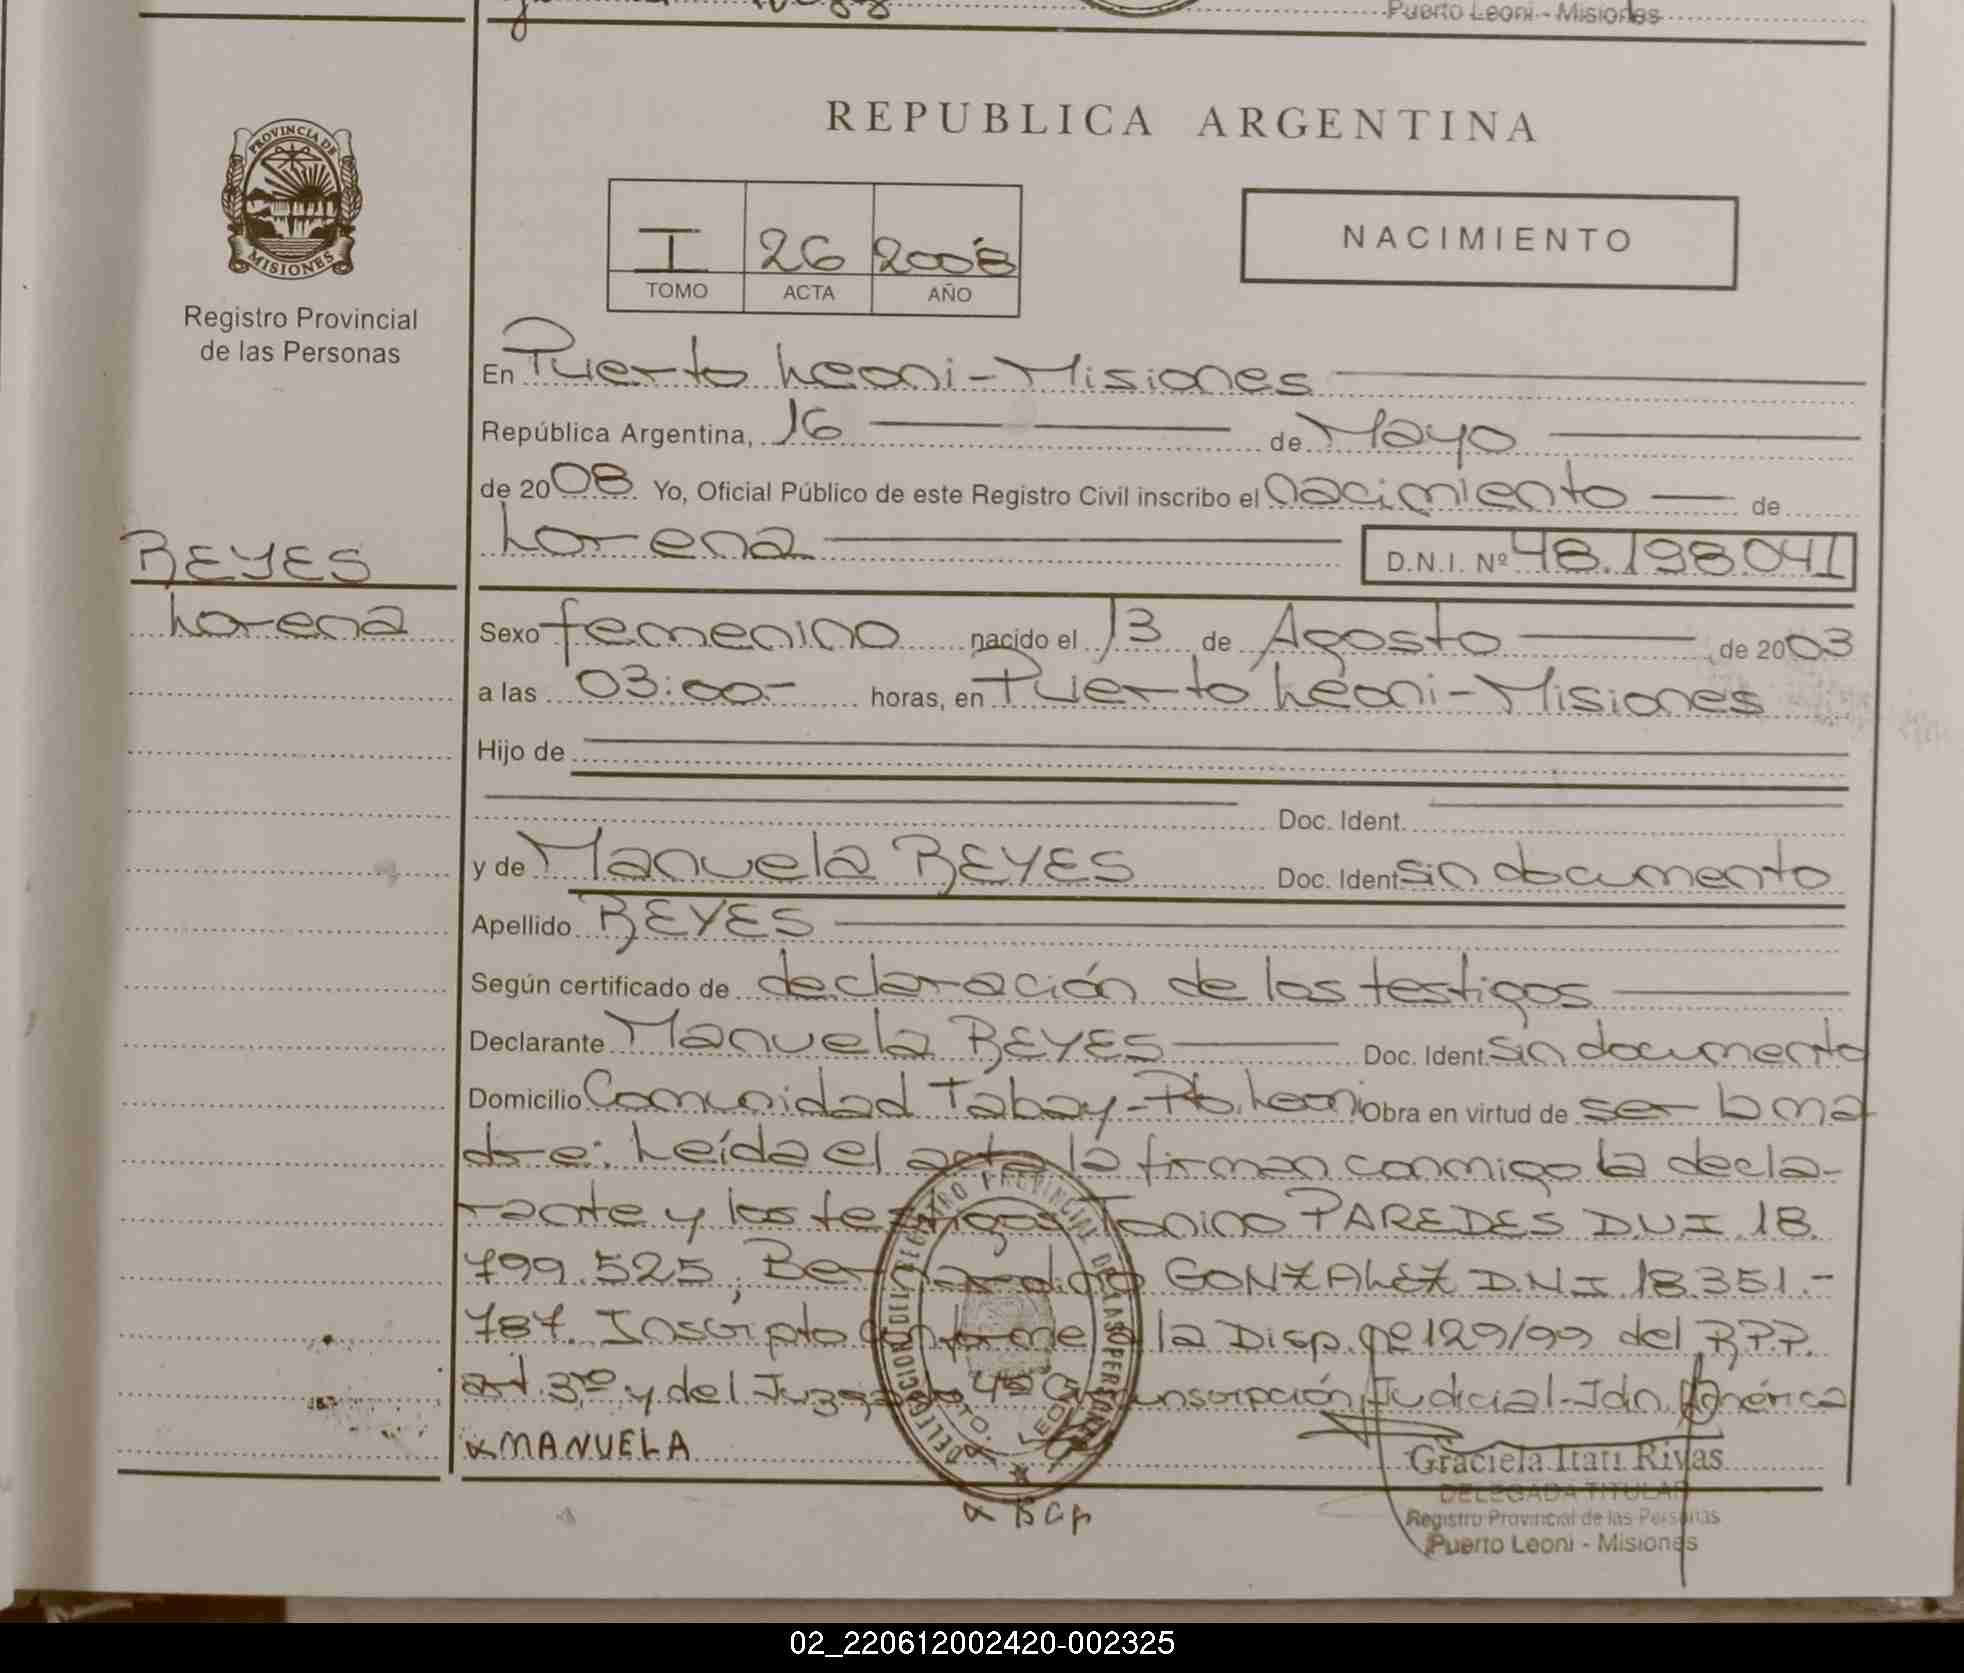 Puerto Leoni - Misiones
REPUBLICA ARGENTINA
PROVINCIA DE
MISIONES
Registro Provincial
de las Personas
I 26 2008
TOMO ACTA AÑO
NACIMIENTO
En Puerto Leoni - Misiones
República Argentina, 16 de Mayo
de 2008 Yo, Oficial Público de este Registro Civil inscribo el nacimiento de
Lorena D.N.I. Nº 48.198.041
REYES
Lorena
Sexo femenino nacido el 13 de Agosto de 2003
a las 03:00.- horas, en Puerto Leoni - Misiones
Hijo de
Doc. Ident.
y de Manuela REYES Doc. Ident. sin documento
Apellido REYES
Según certificado de declaración de los testigos
Declarante Manuela REYES Doc. Ident. sin documento
Domicilio Comunidad Tabay - Pto. Leoni Obra en virtud de ser la ma
dre: Leída el acta la firman conmigo la decla-
rante y los testigos Tonino PAREDES D.N.I 18.
799.525, Bernardino GONZALEZ D.N.I 18.351.-
787. Inscripto conforme a la Disp. nº 129/99 del R.P.P.
art. 3ro y del Juzgado 4ta Circunscripción Judicial - Jdn. América
x MANUELA
DELEGACION REGISTRO PROVINCIAL DE LAS PERSONAS
PTO. LEONI
Graciela Itatí Rivas
DELEGADA TITULAR
Registro Provincial de las Personas
Puerto Leoni - Misiones
02_220612002420-002325